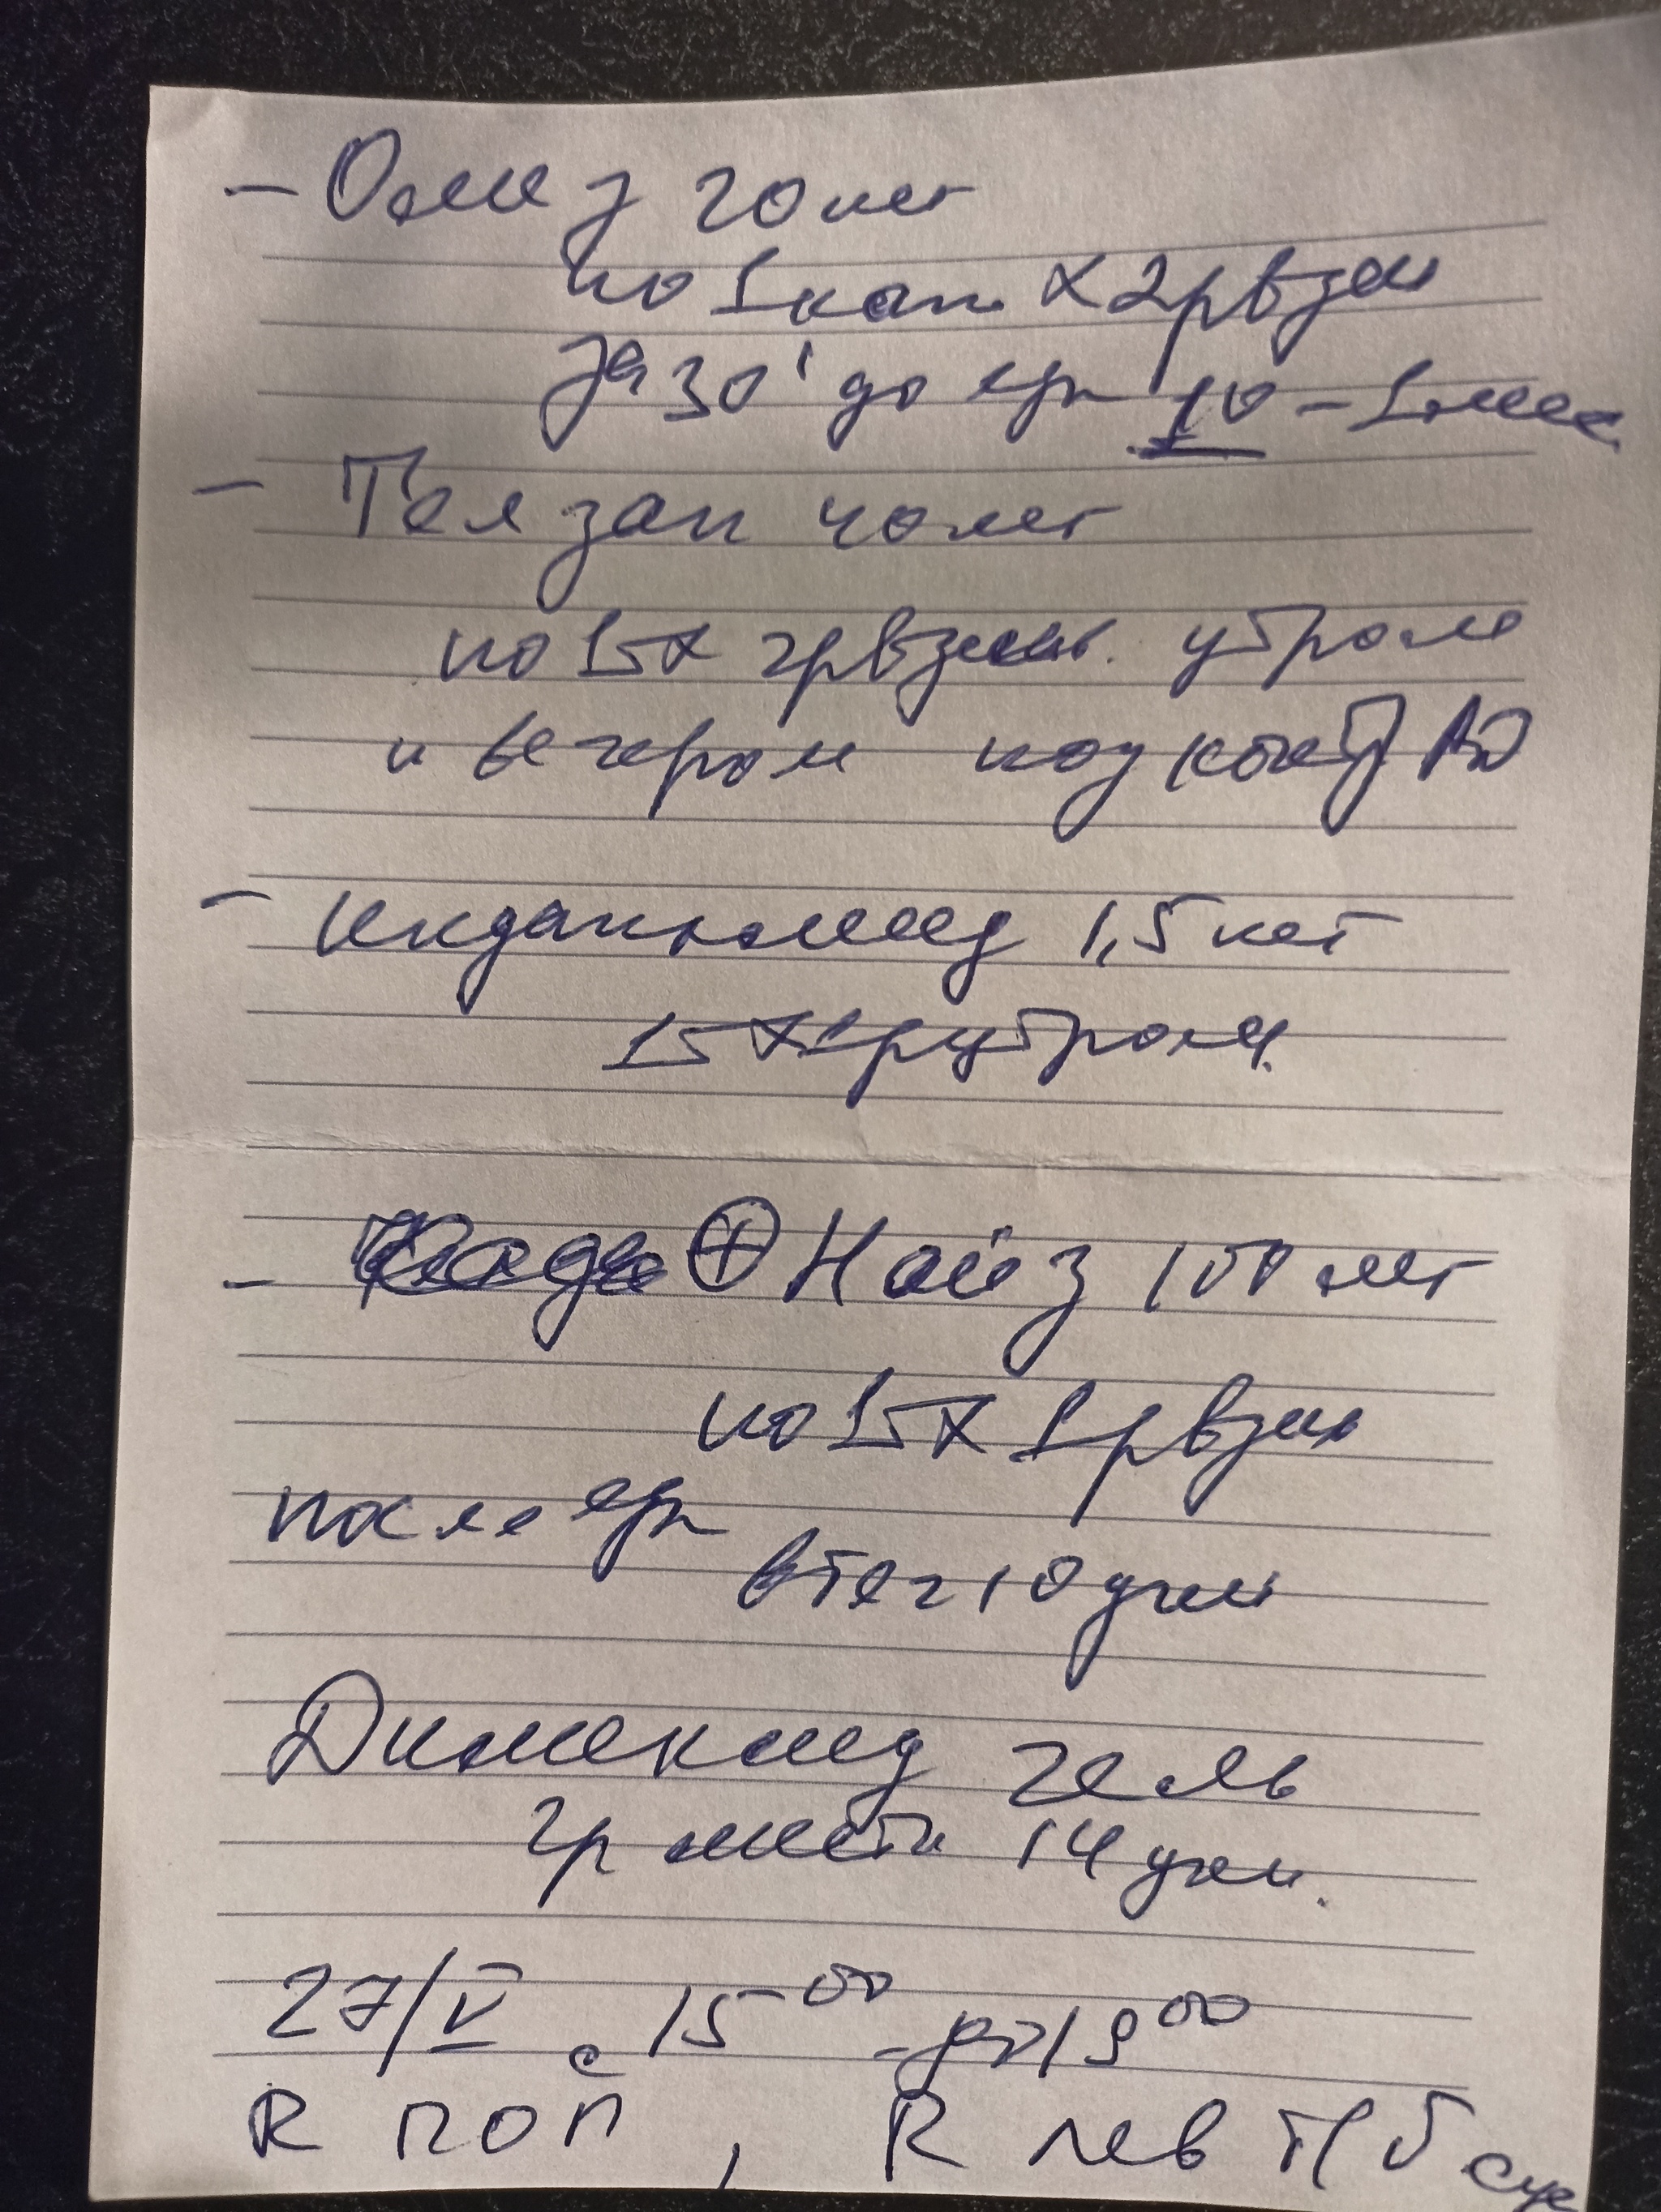 - Омез 20 мг
по 1 кап x 2р в день
за 30' до еды 10 - 1 мес
- Телзап 40 мг
по 1т x 2р в день. утром
и вечером под контр АД
- Индапамид 1,5 мг
1т x 1р утром.
- ⊕ Найз 100 мг
по 1т x 1р в день
после еды
в теч 10 дней
Димексид гель
2р местн 14 дней.
27/V с 15 00 - до 19 00
R ПОП, R лев т/б сус